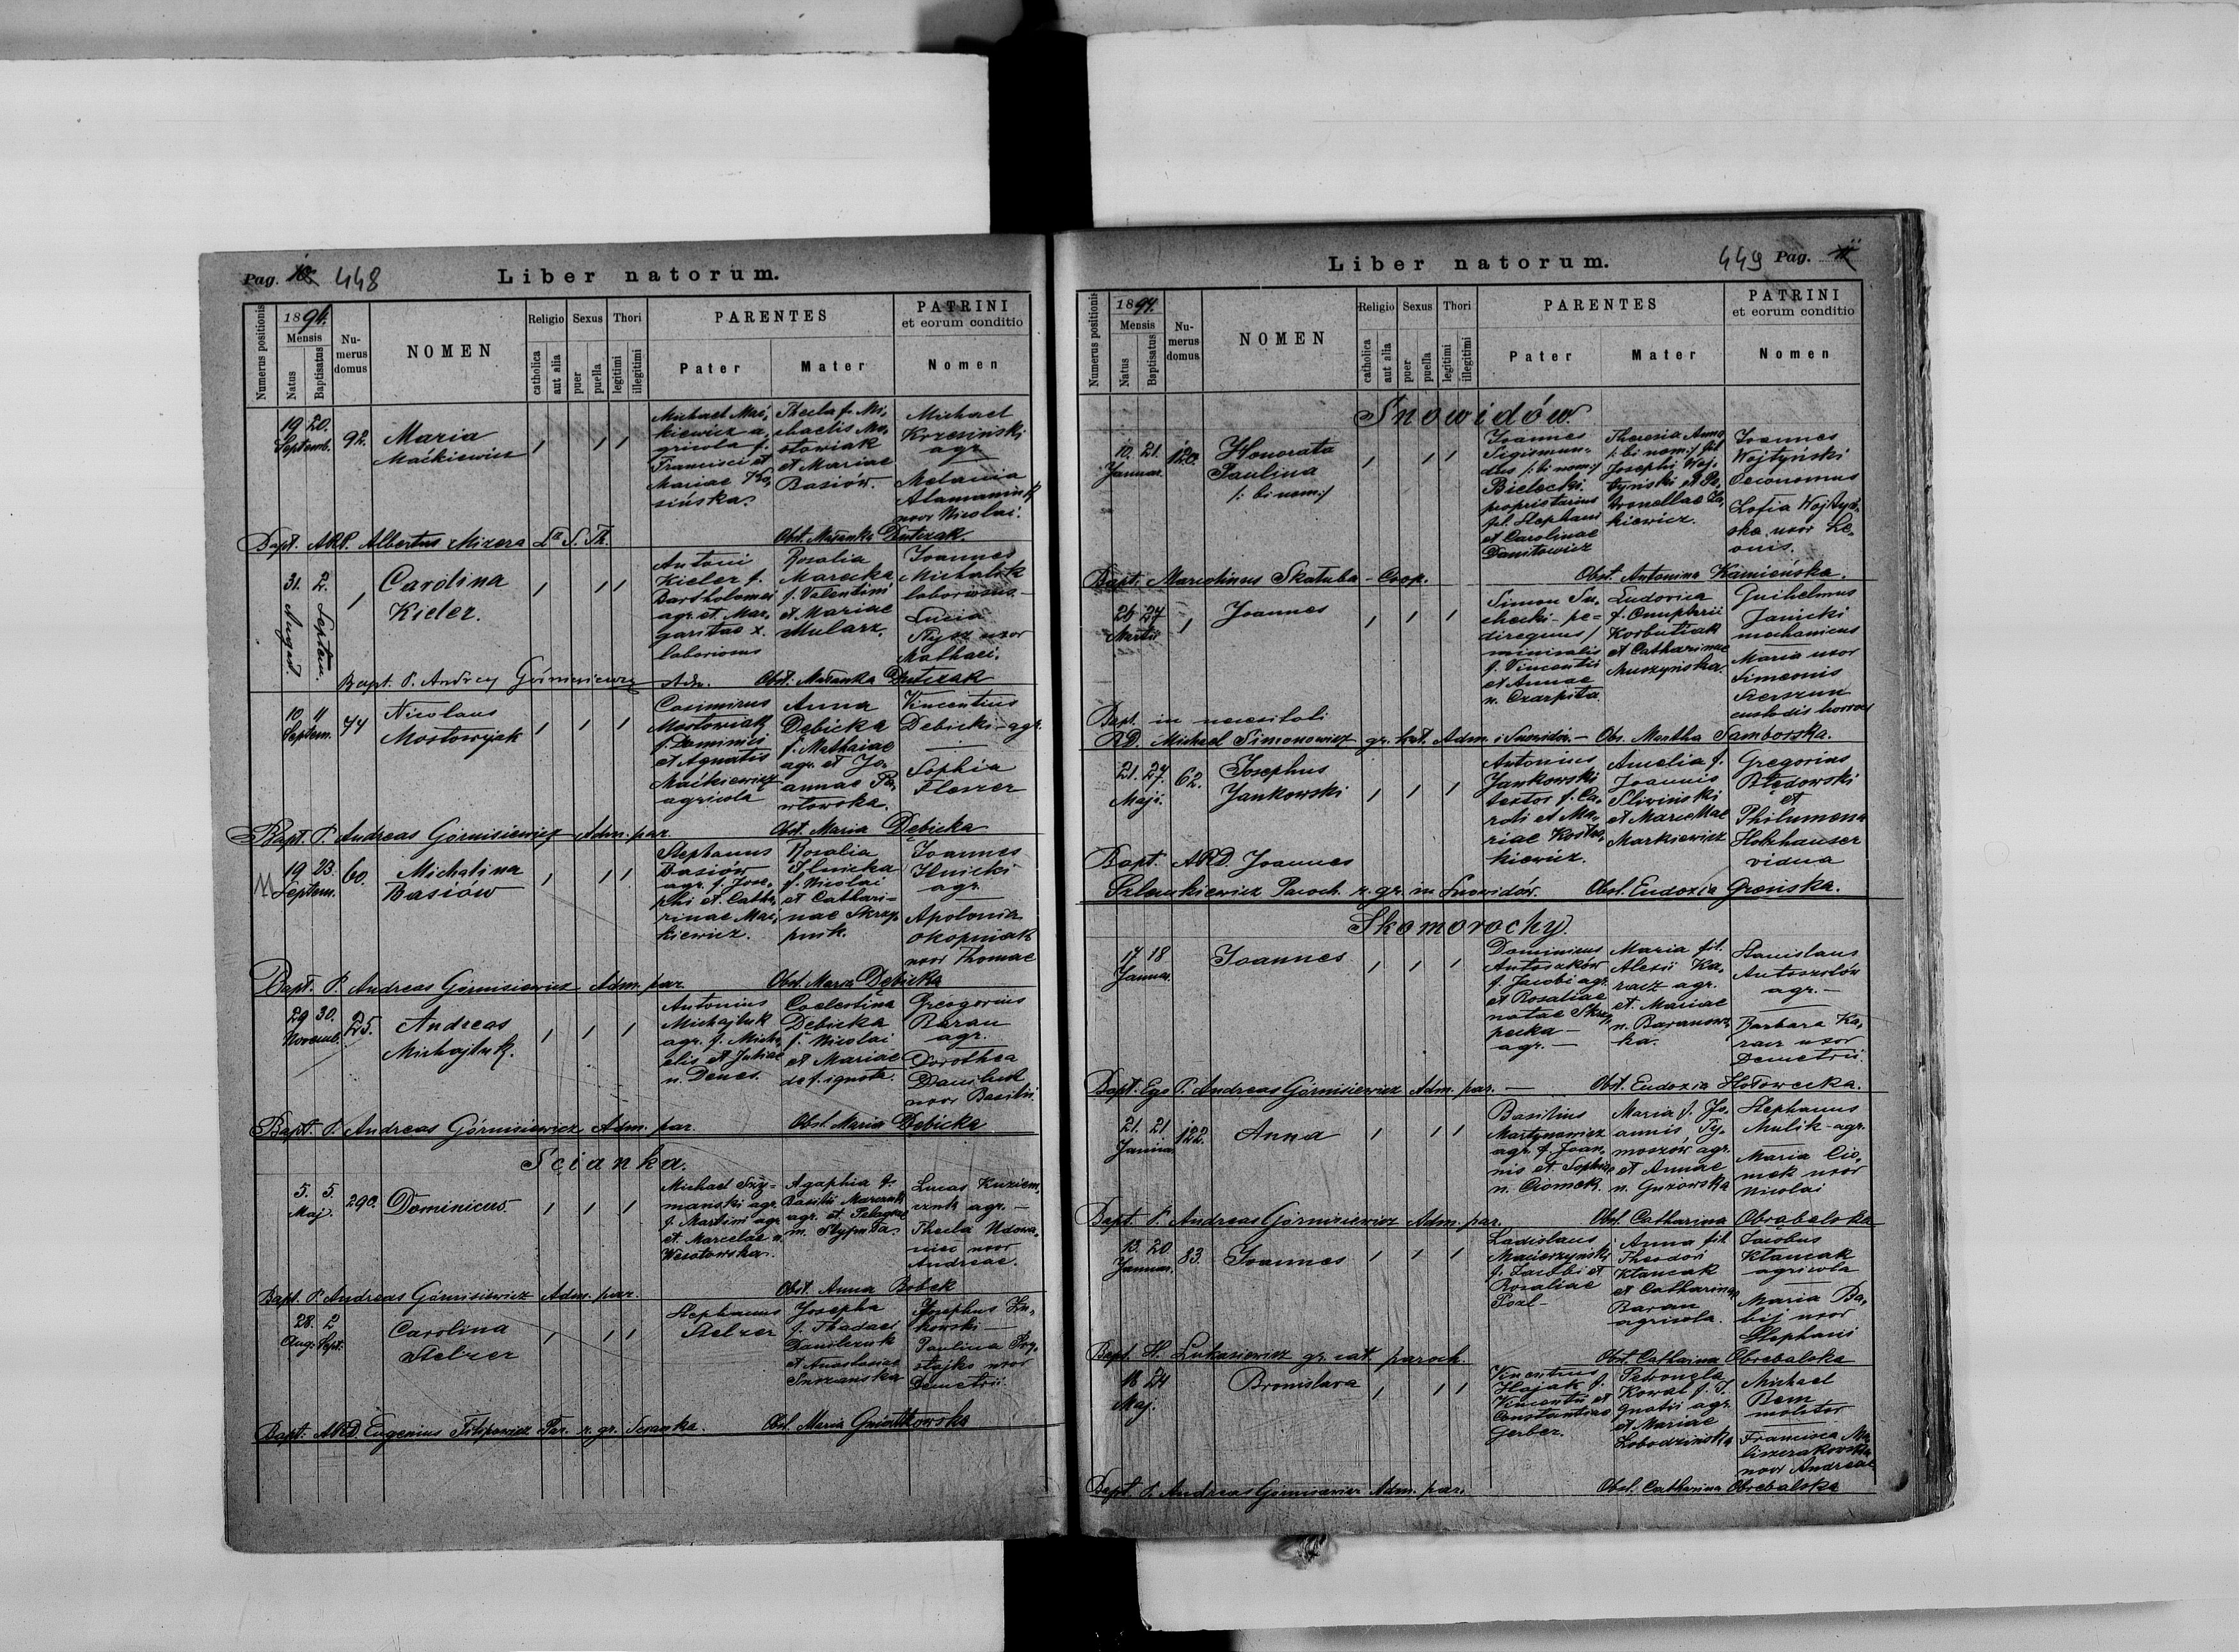 Pag. 448
Liber natorum.
Numerus positionis
1894.
Mensis
Natus
Baptisatus
Numerus domus
NOMEN
Religio
catholica
aut alia
Sexus
puer
puella
Thori
legitimi
illegitimi
PARENTES
Pater
Mater
PATRINI
et eorum conditio
Nomen
19 20.
Septemb.
92.
Maria
Maćkiewicz
Michael Mać,
kiewicz a,
gricola f.
Francisci et
Mariae
sińska.
Thecla f. Mi,
chaelis Mo,
stowiak
et Mariae
Basiów.
Michael
Krzesiński
agr.
Melania
uxor Nicolai.
Bapt. Albertus Mizera S. Th.
Obst. Marianka Dutczak.
31. 2.
August. Septem.
1
Carolina
Kieler.
Antoni
Kieler f.
Bartholomei
agr. et Mar,
garitae x.
laboriosus
Rosalia
Marecka
f. Valentini
et Mariae
Mularz.
Joannes
Michalik
laboriosus
Lucia
uxor
Mathaei.
Bapt. P. Andrzej Górnisiewicz Adm. Obst. Marianka Dutczak
10 11
Septem.
44
Nicolaus
Mostowyak
Casimirus
Mostowiak
f. Dominici
et Agnatis
Maćkiewicz
agricola
Anna
Debicka
f. Mathaiae
agr. et Jo,
annae Pa,
włowska.
Vincentius
Debicki - agr.
Sophia
Flesser
Bapt. P. Andreas Górnisiewicz Adm. par.
Obst. Maria Dębicka
19 23.
Septem.
60.
Michalina
Basiów
Stephanus
Basiów
agr. f. Jose,
phi et Catha,
rinae Mać,
kiewicz.
Rosalia
Ilnicka
f. Nicolai
et Cathari-
nae Skrzy,
pnik.
Joannes
Ilnicki
agr.
Apolonia
Okopniak
uxor Thomae
Bapt. P. Andreas Górnisiewicz Adm. par.
Obst. Maria Dębicka
29 30.
Novemb.
25.
Andreas
Michajluk.
Antonius
Michajluk
agr. f. Mich,
elis et Juliae
n. Denes.
Coelestina
Debicka
f. Nicolai
et Mariae
de f. ignota.
Gregorius
Baran
agr.
Dorothea
uxor Basilii
Bapt. P. Andreas Górnisiewicz Adm. par.
Obst. Maria Dębicka
Ścianka.
5. 5.
Maj.
290.
Dominicus
Michael Szy-
mański agr.
f. Martini agr.
et Marcelae n.
Wesołowska.
Agaphia f.
Basilii
agr. et Pelagiae
Lucas
agr. -
Thecla
uxor
Andreae.
Bapt. P. Andreas Górnisiewicz Adm. par.
Obst. Anna Bobek
28. 2
Aug. Sept.
Carolina
Stelzer
Stephanus
Stelzer
Josepha
f. Thadaei
Danilczuk
et Anastasiae
Josephus Żu,
kowski -
Paulina
uxor
Demetrii
Bapt. ARD. Eugenius Filipowicz Par. r. gr. Ścianka.
Obst. Maria Gniatkowska
Liber natorum.
449 Pag.
Numerus positionis
1894.
Mensis
Natus
Baptisatus
Numerus domus
NOMEN
Religio
catholica
aut alia
Sexus
puer
puella
Thori
legitimi
illegitimi
PARENTES
Pater
Mater
PATRINI
et eorum conditio
Nomen
Snowidów.
10. 21.
Januar.
120.
Honorata
Paulina
/: bi nom:/
Joannes
Sigismun-
dus /: bi nom:/
Bielecki
proprietarius
fil. Stephani
et Carolinae
Daniłowicz
Theresia Anna
/: bi nom:/ fil.
Josephi Woj,
tyński et Pe,
tronellae Ła,
kiewicz.
Joannes
Wojtyński
Oeconomus
Zofia Wojtyń,
ska uxor Le,
onis.
Bapt. Marcelinus Skałuba - Coop.
Obst. Antonina Kamieńska.
26 27
Martii
1
Joannes
Simon Su,
checki - pe-
disequus /
minisalis
f. Vincentii
et Annae
n. Czarpita.
Ludovica
f. Onuphrii
Korbutiak
et Catharinae
Muszyńska.
Guilielmus
Janicki
mechanicus
Maria uxor
Simeonis
Szerszun
custodis horrei
Bapt. in necesitati
RD. Michael Simonowicz gr. kat. Adm. i Snowidów - Obs. Martha Samborska.
21. 27
Maji.
62.
Josephus
Jankowski
Antonius
Jankowski
textor f. Ca,
roli et Ma,
riae Kostka,
kiewicz.
Amelia f.
Joannis
Śliwiński
et Mariellae
Markiewicz
Gregorius
Błędowski
et
Philumena
Holzhauser
vidua
Bapt. ARD. Joannes
Szlankiewicz Paroch. r. gr. in Snowidów. Obst. Eudoxia Grońska.
Skomorochy.
17 18
Januar.
Joannes
Dominicus
Antosaków
f. Jacobi agr.
et Rosaliae
natae Skrzy,
pecka -
agr. -
Maria fil.
Alexii Ka,
racz agr.
et Mariae
n. Baranows,
ka.
Stanislaus
agr. -
Barbara Ka,
racz uxor
Demetrii
Bapt. Ego P. Andreas Górnisiewicz Adm. par. -
Obst. Eudoxia Hołowecka.
21. 21
Januar.
122.
Anna
Basilius
Martynowicz
agr. f. Joan,
nis et Sophiae
n. Ciomek.
Maria f. Jo,
annis Ty,
moszów agr.
et Annae
n. Guzowska
Stephanus
Mulik - agr.
Maria Cio,
mek uxor
Nicolai
Bapt. P. Andreas Górnisiewicz Adm. par.
Obst. Catharina Obrąbalska
13. 20
Januar.
83.
Joannes
Ladislaus
Macierzyński
f. Jacobi et
Rosaliae
Pozl-
Anna fil.
Theodori
Kłamak
et Catharinae
Baran
agricola.
Jacobus
Kłamak
agricola
Maria Ba,
bij uxor
Stephani
Bapt. H. Lukasiewicz gr. cat. paroch.
Obst. Catharina Obrebalska
18 24
Maj.
Bronislava
Vincentius
Hajak f.
Vincentii et
Constantiae
Gerber.
Petronela
Kowal f. I,
gnatii agr.
et Mariae
Łobodzińska
Michael
Bem
molitor
Francisca
uxor Andreae
Bapt. P. Andreas Górnisiewicz Adm. par.
Obst. Catharina Obrebalska